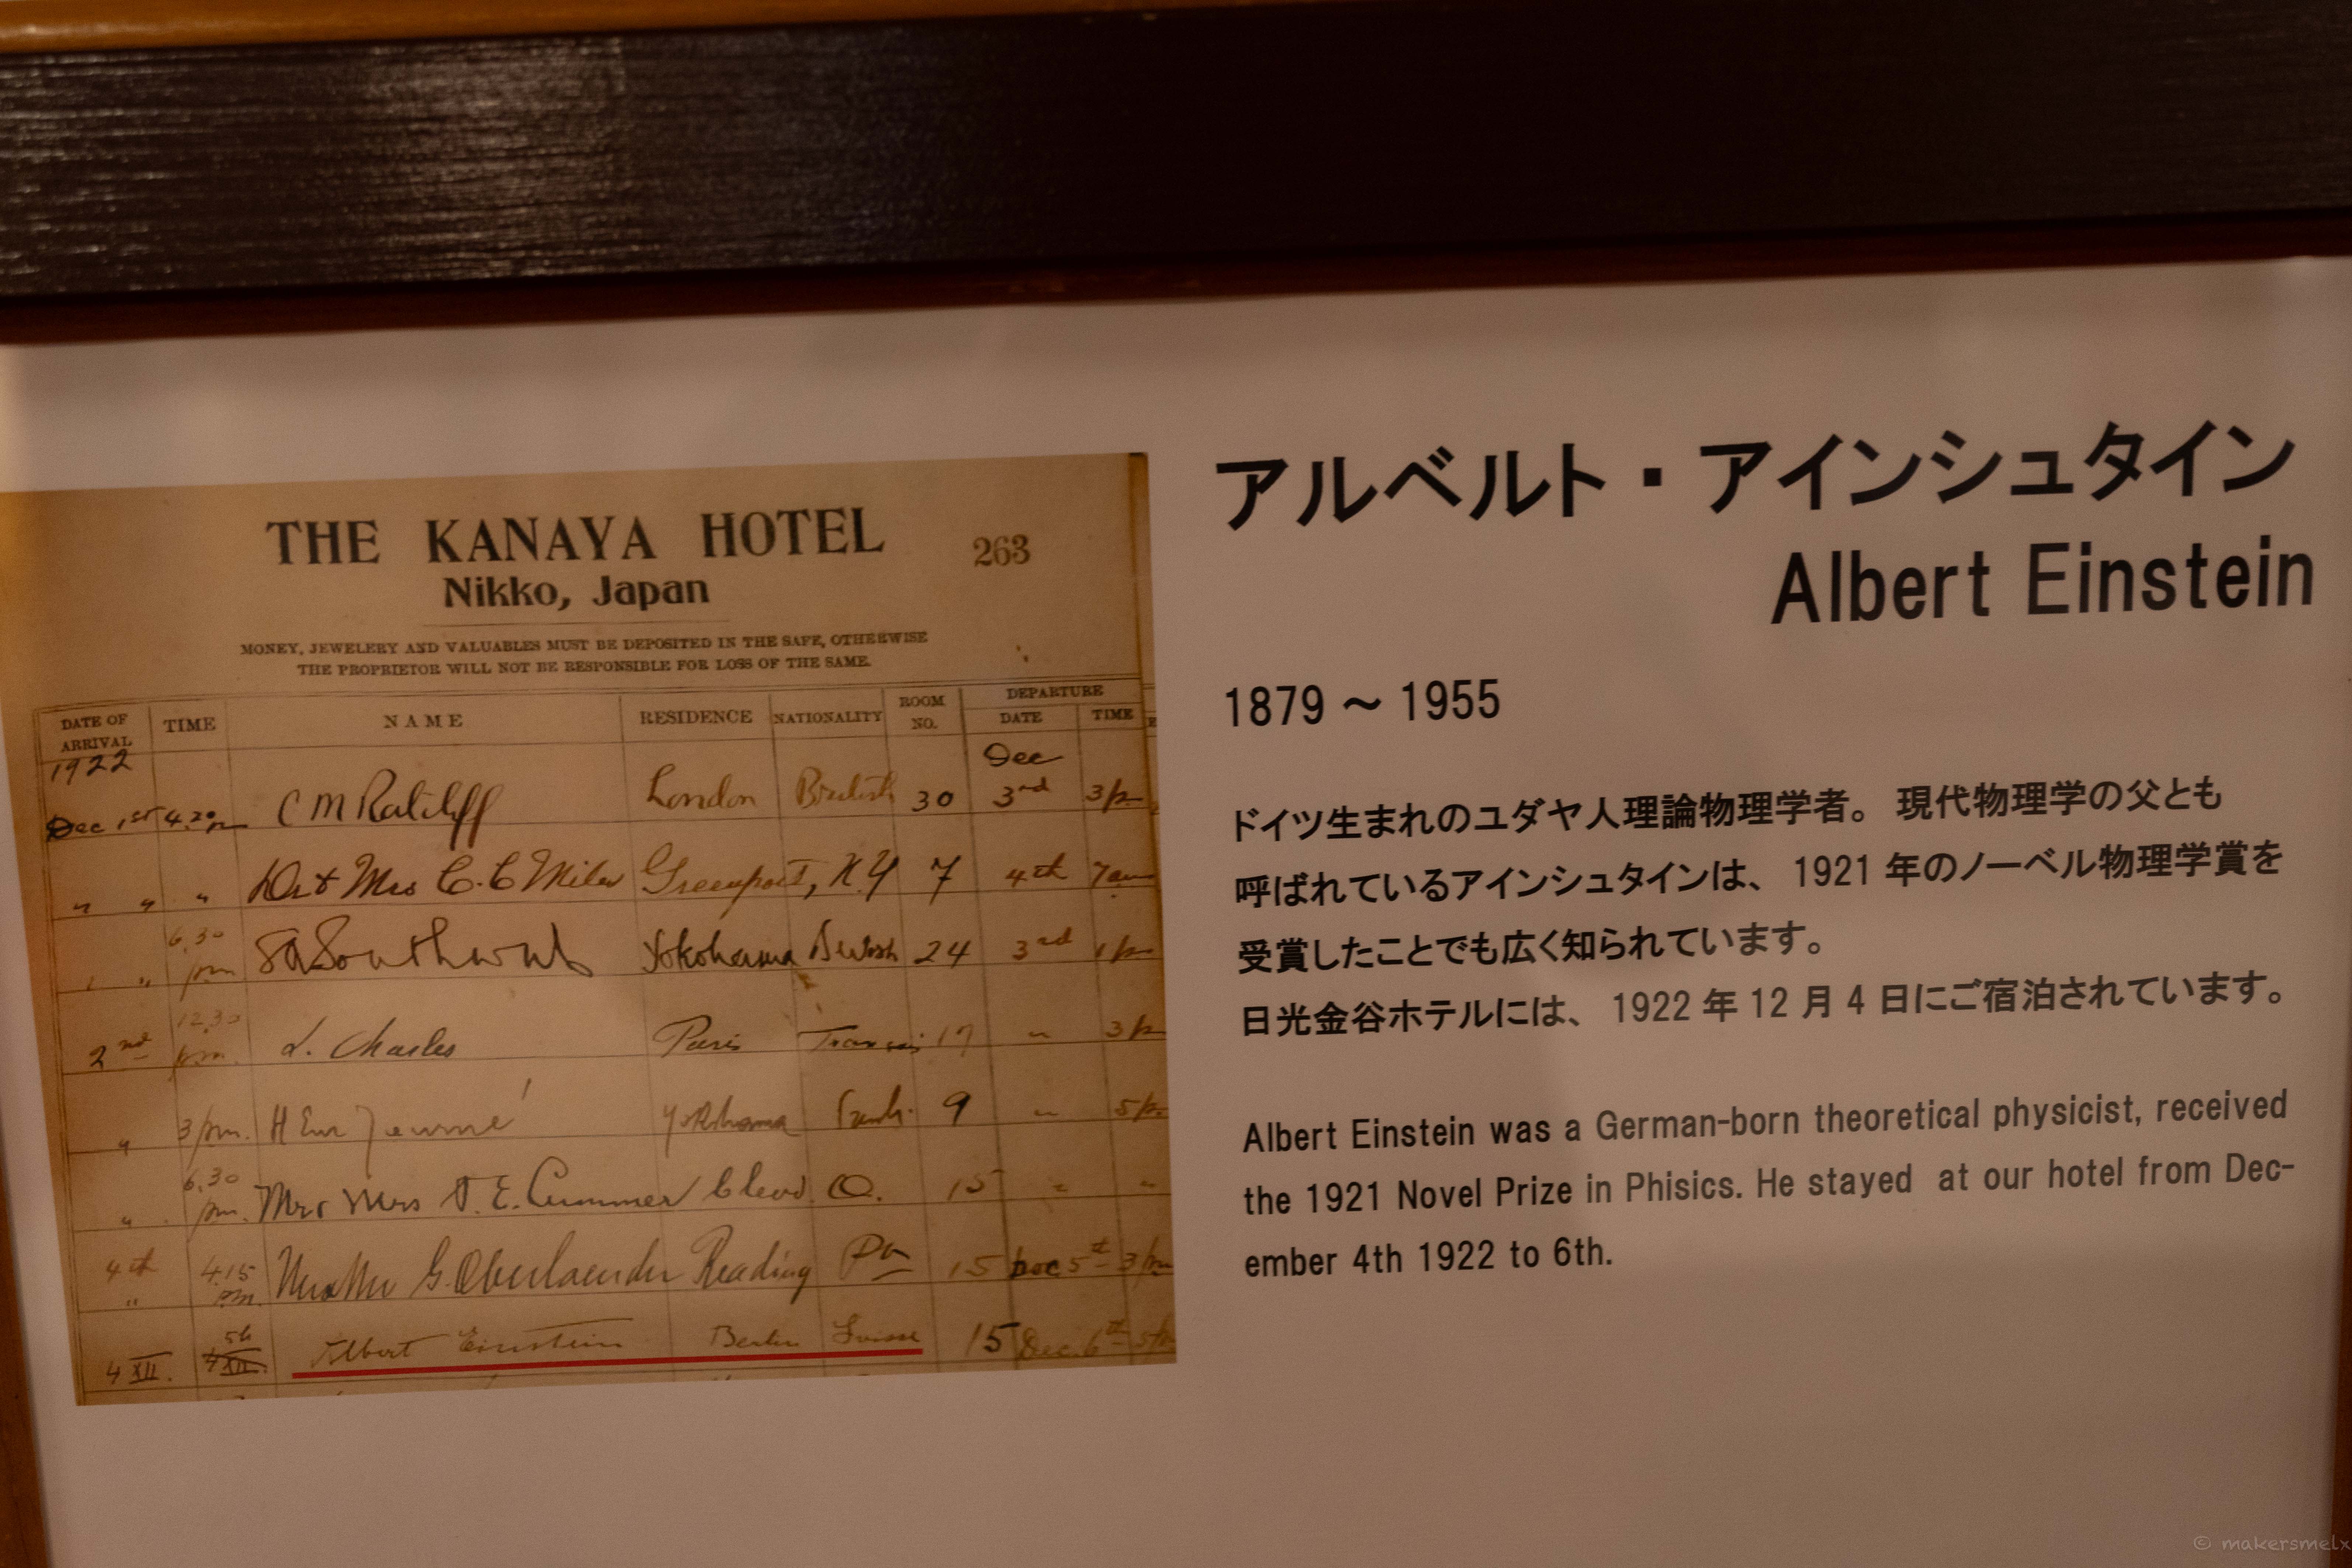 THE KANAYA HOTEL
Nikko, Japan
263
MONEY, JEWELERY AND VALUABLES MUST BE DEPOSITED IN THE SAFE, OTHERWISE
THE PROPRIETOR WILL NOT BE RESPONSIBLE FOR LOSS OF THE SAME.
DATE OF ARRIVAL TIME NAME RESIDENCE NATIONALITY ROOM NO. DEPARTURE DATE TIME
1922 Dec
Dec 1st 4.20 pm C M Ratcliff London British 30 3rd 3 pm
" " " Dr & Mrs C. C Miles Greenport, N Y 7 4th 7 am
" 6.30 pm Yokohama British 24 3rd 1 pm
2nd 12.30 pm. L. Charles Paris 17 " 3 p
" 3 pm. Yokohama 9 " 5 p.
" 6.30 pm. Mr & Mrs J. E. Cummer Cleve. O. 15 " "
4th " 4.15 pm. G. Oberlaender Reading Pa 15 Dec 5th 3 pm
4 XII. 5h Albert Einstein Berlin Suisse 15 Dec. 6th 5 p
アルベルト・アインシュタイン
Albert Einstein
1879 ～ 1955
ドイツ生まれのユダヤ人理論物理学者。 現代物理学の父とも
呼ばれているアインシュタインは、 1921 年のノーベル物理学賞を
受賞したことでも広く知られています。
日光金谷ホテルには、 1922 年 12 月 4 日にご宿泊されています。
Albert Einstein was a German-born theoretical physicist, received
the 1921 Novel Prize in Phisics. He stayed at our hotel from Dec-
ember 4th 1922 to 6th.
© makersmelx